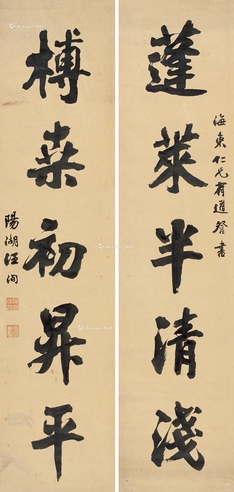 蓬萊半清淺
海東仁兄有道詧書
榑桒初昇平
陽湖汪洵